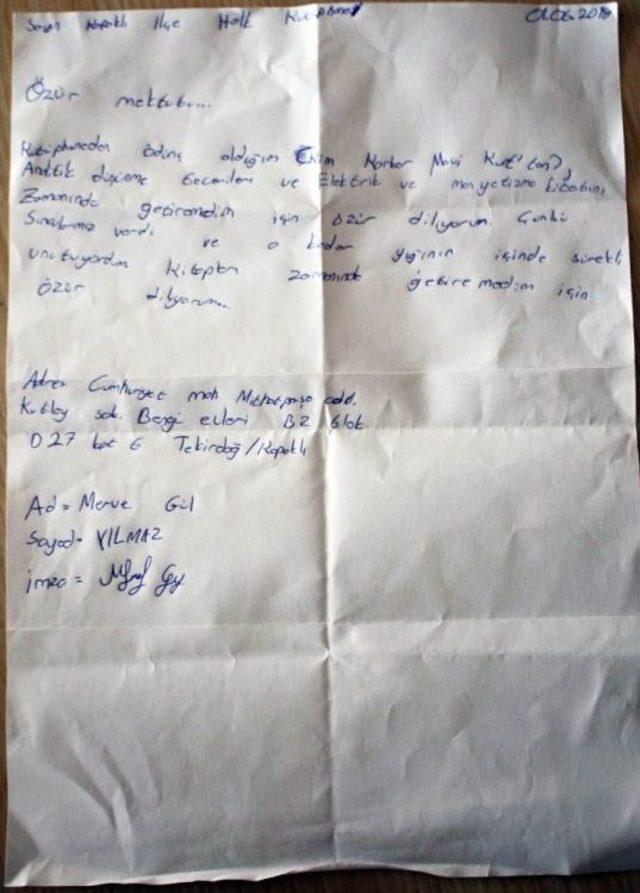 Sayın Kapaklı İlçe Halk Kütüphanesi 01.06.2018
Özür mektubu...
Kütüphaneden ödünç aldığım Ekim Mavi Kurt'tan)
Analitik düşünme becerileri ve Elektrik ve manyetizma kitabını,
Zamanında getiremediğim için özür diliyorum. Çünkü
Sınavlarımız vardı ve o kadar yığının içinde sürekli
unutuyordum kitapları zamanında getiremediğim için
özür diliyorum...
Adres Cumhuriyet mah Mithatpaşa cadd.
Kutlay sok. Bengi evleri B2 blok
D 27 kat 6 Tekirdağ/Kapaklı
Ad = Merve Gül
Soyad= YILMAZ
imza =